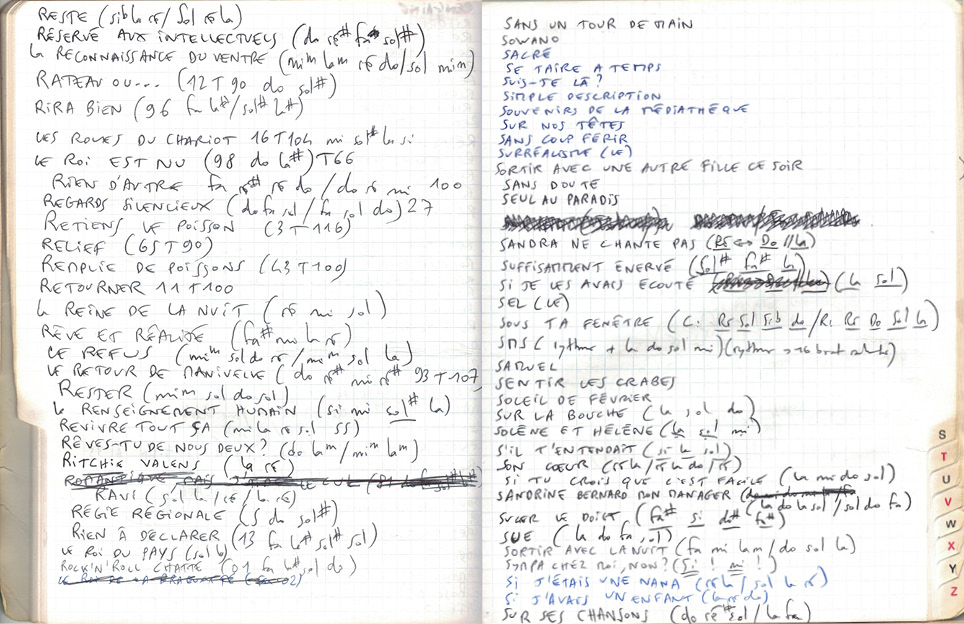 RESTE (sib la ré / Sol ré la)
RÉSERVÉ AUX INTELLECTUELS (do ré# fa# sol#)
la RECONNAISSANCE DU VENTRE (mim lam ré do/sol mim)
RATEAU OU... (12T90 do sol#)
RIRA BIEN (96 fa la#/sol#
LES ROUES DU CHARIOT 16T104 mi sol# la si
LE ROI EST NU (98 do la#) T66
RIEN D'AUTRE fa ré# ré do / do ré mi 100
REGARDS SILENCIEUX (do fa sol / fa sol do) 27
RETIENS LE POISSON (3T116)
RELIEF (65T90)
REMPLIE DE POISSONS (43T100)
RETOURNER 11T100
la REINE DE LA NUIT (ré mi sol)
RÊVE ET RÉALITÉ (fa# mi la ré)
CE REFUS (mim sol do ré / mim sol la)
LE RETOUR DE MANIVELLE (do ré# mi ré# 93T107)
RESTER (mim sol do sol)
LE RENSEIGNEMENT HUMAIN (si mi sol# la)
REVIVRE TOUT ÇA (mi la ré sol SS)
RÊVES-TU DE NOUS DEUX? (do lam / mim lam)
RITCHIE VALENS (la ré)
RAVI (sol la / ré / la ré)
RÉGIE RÉGIONALE (5 do sol#)
RIEN À DÉCLARER (13 fa la# sol# sol)
LE ROI DU PAYS (sol b)
ROCK'N'ROLL CHATTE (D1 fa la# sol do)
SANS UN TOUR DE MAIN
SOWANO
SACRÉ
SE TAIRE A TEMPS
SUIS-JE LÀ?
SIMPLE DESCRIPTION
SOUVENIRS DE LA MÉDIATHÈQUE
SUR NOS TÊTES
SANS COUP FÉRIR
SURRÉALISME (LE)
SORTIR AVEC UNE AUTRE FILLE CE SOIR
SANS DOUTE
SEUL AU PARADIS
SANDRA NE CHANTE PAS (Ré ↔ Do // la)
SUFFISAMMENT ÉNERVÉ (Sol# fa# la)
SI JE LES AVAIS ÉCOUTÉ (la sol)
SEL (LE)
SOUS TA FENÊTRE (C: Ré Sol Sib do / R: Ré Do Sol la)
SMS (rythme + la do sol mi) (rythme >16
SAMUEL
SENTIR LES CRABES
SOLEIL DE FÉVRIER
SUR LA BOUCHE (la sol do)
SOLÈNE ET HÉLÈNE (la sol mi)
S'IL T'ENTENDAIT (si la sol)
SON CŒUR (ré la / ré la do / ré)
SI TU CROIS QUE C'EST FACILE (la mi do sol)
SANDRINE BERNARD MON MANAGER (la do la sol / sol do fa)
SUCER LE DOIGT (fa# si do# fa#)
SUE (la do fa sol)
SORTIR AVEC LA NUIT (fa mi lam / do sol la)
SYMPA CHEZ MOI, NON? (Si! mi!)
SI J'ÉTAIS UNE NANA (ré la / sol la ré)
SI J'AVAIS UN ENFANT (la ré do)
SUR SES CHANSONS (do ré# sol / la fa)
S
T
U
V
W
X
Y
Z